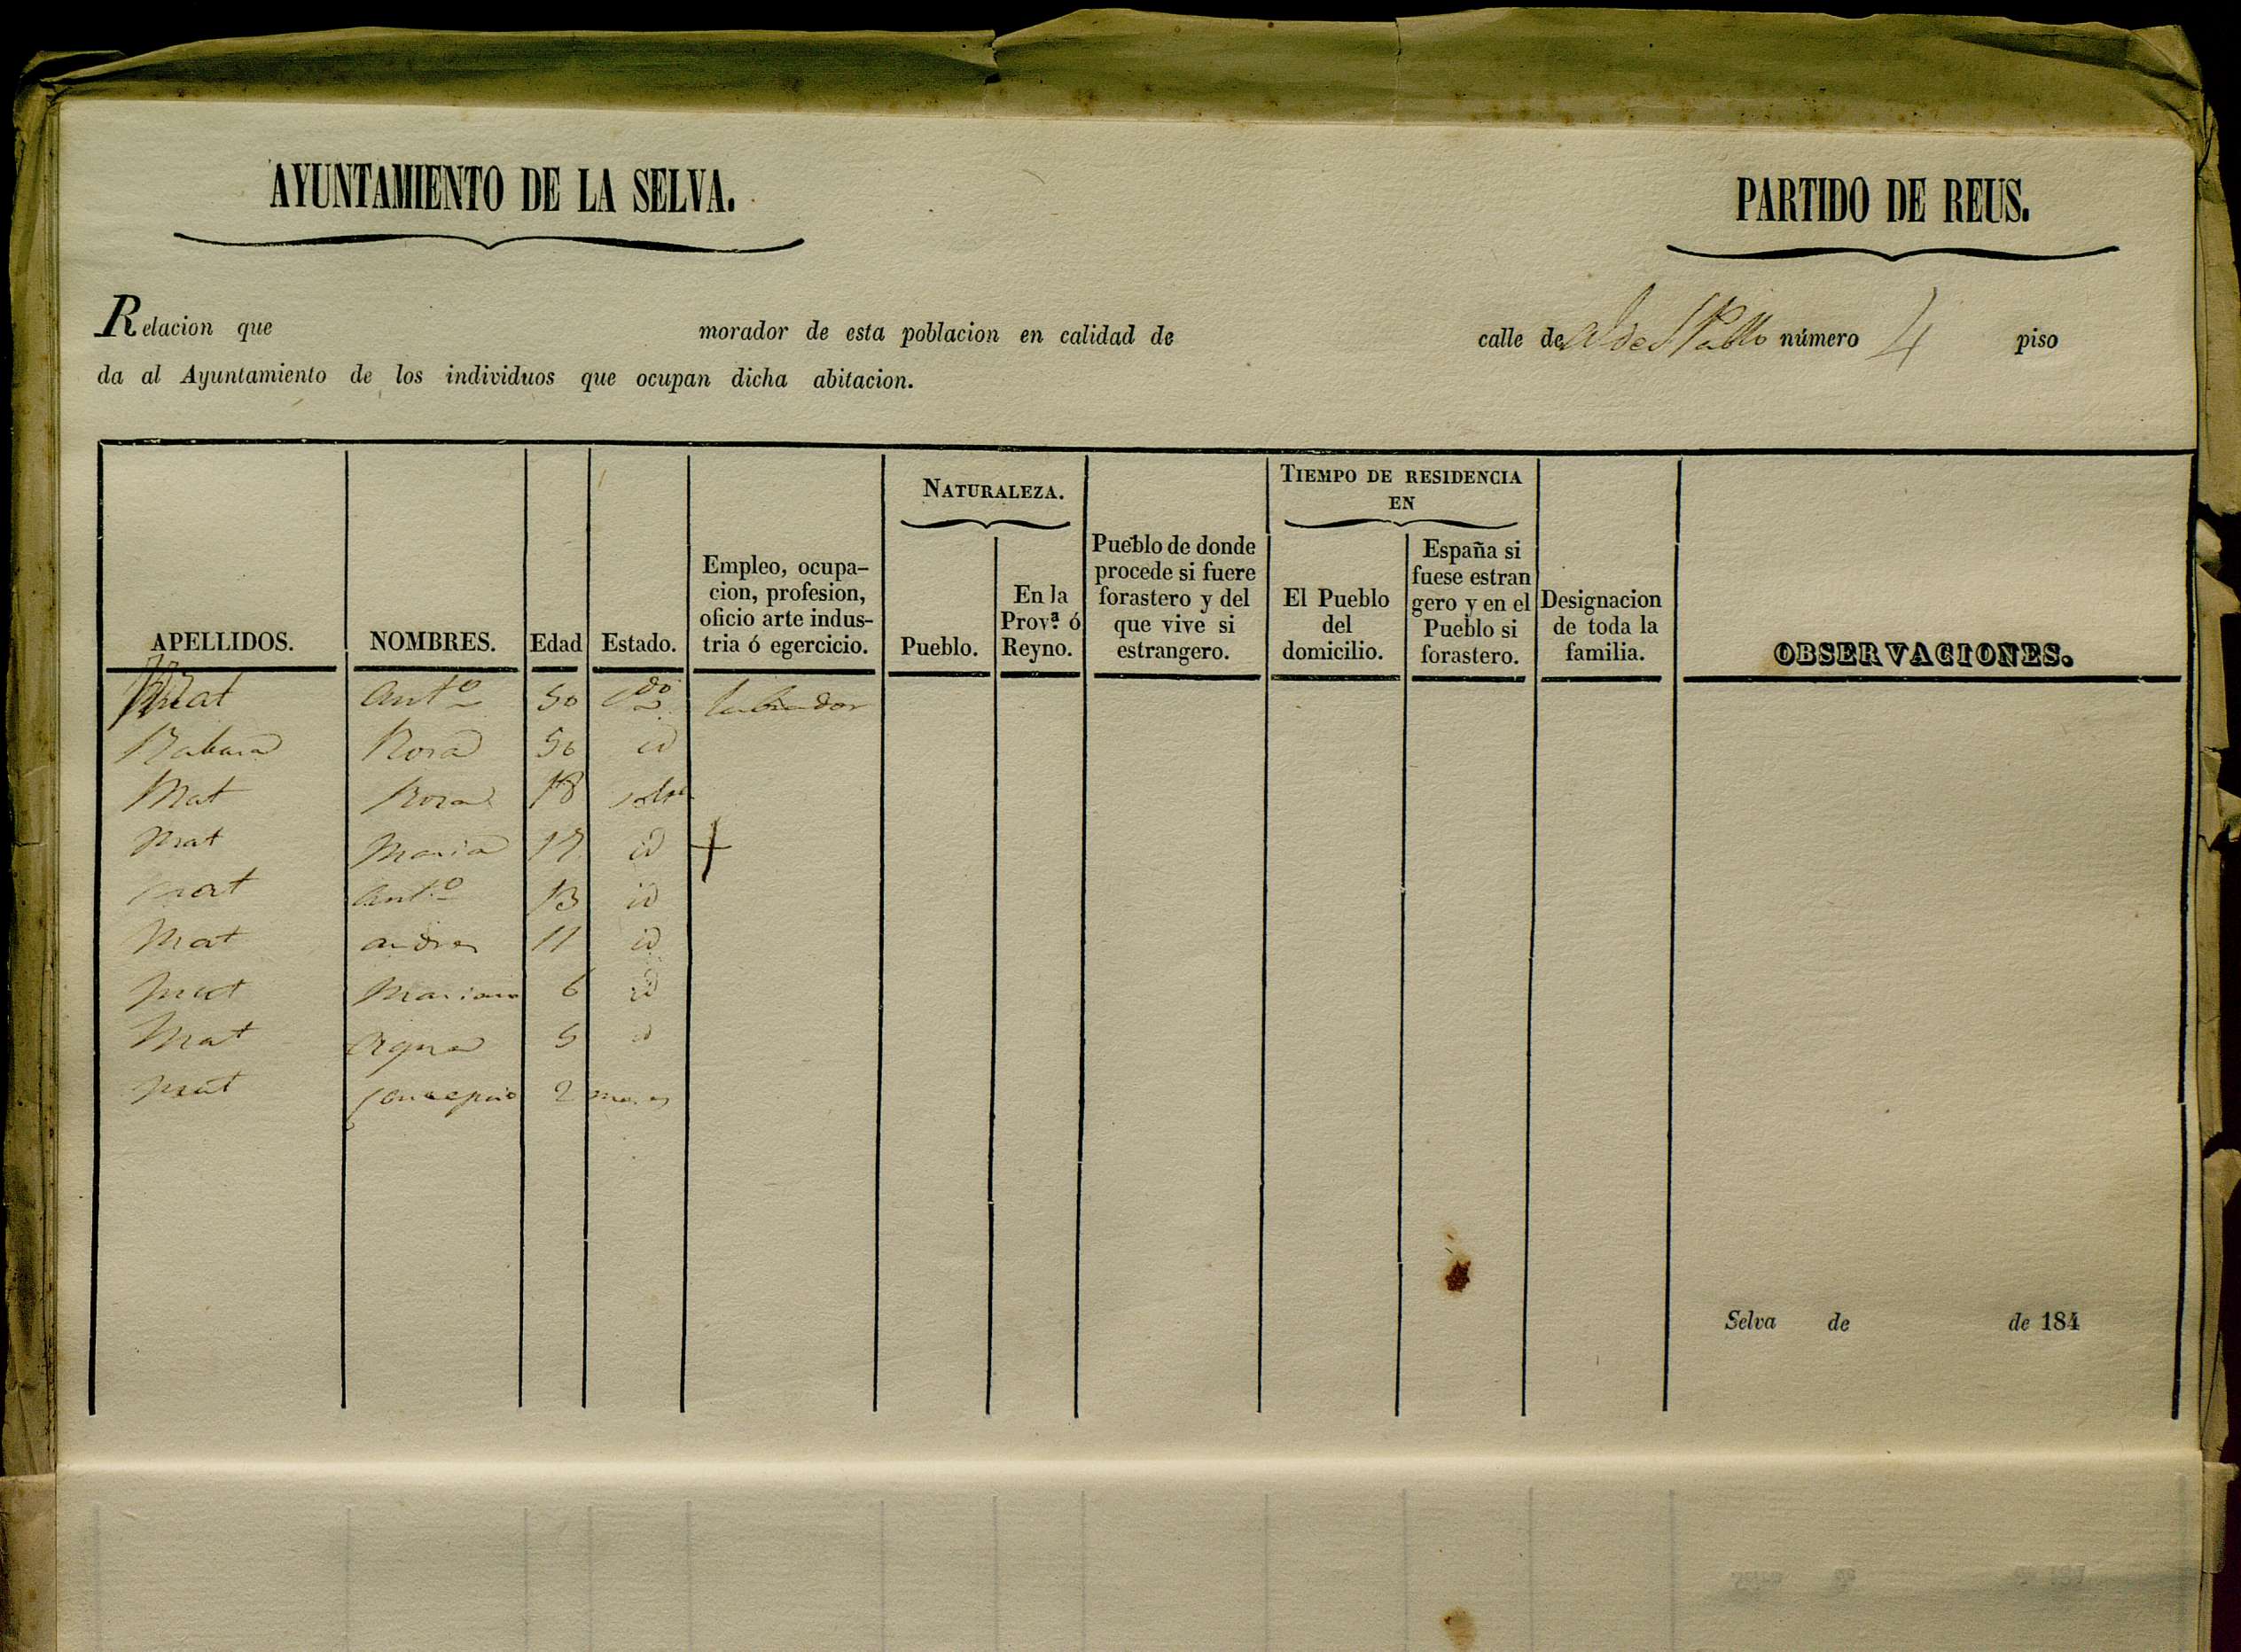 AYUNTAMIENTO DE LA SELVA. PARTIDO DE REUS.
Relacion que morador de esta poblacion en calidad de calle de número 4 piso
da al Ayuntamiento de los individuos que ocupan dicha abitacion.
APELLIDOS. NOMBRES. Edad Estado. Empleo, ocupa-
cion, profesion,
oficio arte indus-
tria ó egercicio.
NATURALEZA.
Pueblo. En la
Prov.ª ó
Reyno.
Pueblo de donde
procede si fuere
forastero y del
que vive si
estrangero.
TIEMPO DE RESIDENCIA
EN
El Pueblo
del
domicilio.
España si
fuese estran
gero y en el
Pueblo si
forastero.
Designacion
de toda la
familia.
OBSERVACIONES.
Mat Antº 50 labrador
Rosa 50 id
Mat Rosa 18
Mat Maria 17 id +
Mat Antº 13 id
Mat andres 11 id
Mat Mariano 6 id
Mat Agna 5 id
Mat 2 meses
Selva de de 184